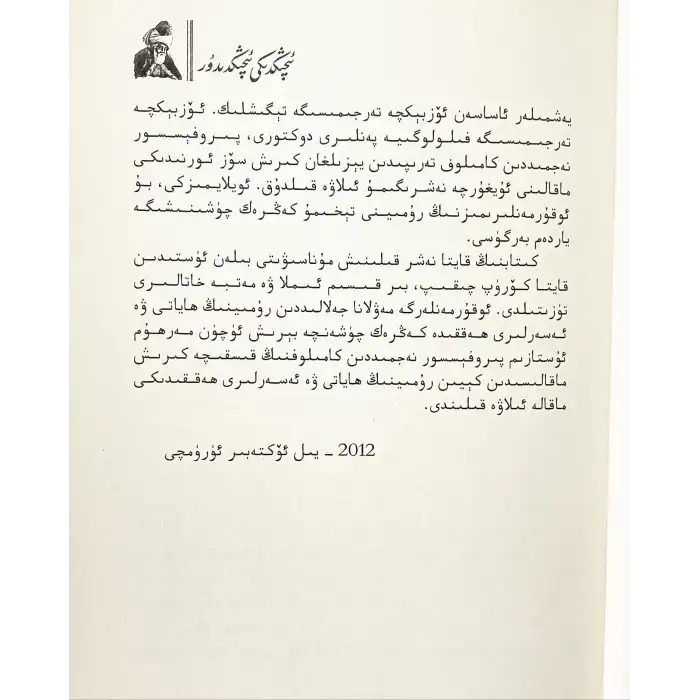 ئىچىڭدىكى ئىچىڭدىدۇر
يەشمىلەر ئاساسەن ئۆزبېكچە تەرجىمىسىگە تېگىشلىك. ئۆزبېكچە
تەرجىمىسىگە فىلولوگىيە پەنلىرى دوكتورى، پىروفېسسور
نەجمىددىن كامىلوف تەرىپىدىن يېزىلغان كىرىش سۆز ئورنىدىكى
ماقالىنى ئۇيغۇرچە نەشرىگىمۇ ئىلاۋە قىلدۇق. ئويلايمىزكى، بۇ
ئوقۇرمەنلىرىمىزنىڭ رۇمىينى تېخىمۇ كەڭرەك چۈشىنىشىگە
ياردەم بەرگۈسى.
كىتابنىڭ قايتا نەشر قىلىنىش مۇناسىۋىتى بىلەن ئۈستىدىن
قايتا كۆرۈپ چىقىپ، بىر قىسىم ئىملا ۋە مەتبە خاتالىرى
تۈزىتىلدى. ئوقۇرمەنلەرگە مەۋلانا جەلالىددىن رۇمىينىڭ ھاياتى ۋە
ئەسەرلىرى ھەققىدە كەڭرەك چۈشەنچە بېرىش ئۈچۈن مەرھۇم
ئۇستازىم پىروفېسسور نەجمىددىن كامىلوفنىڭ قىسقىچە كىرىش
ماقالىسىدىن كېيىن رۇمىينىڭ ھاياتى ۋە ئەسەرلىرى ھەققىدىكى
ماقالە ئىلاۋە قىلىندى.
2012 ـ يىل ئۆكتەبىر ئۈرۈمچى